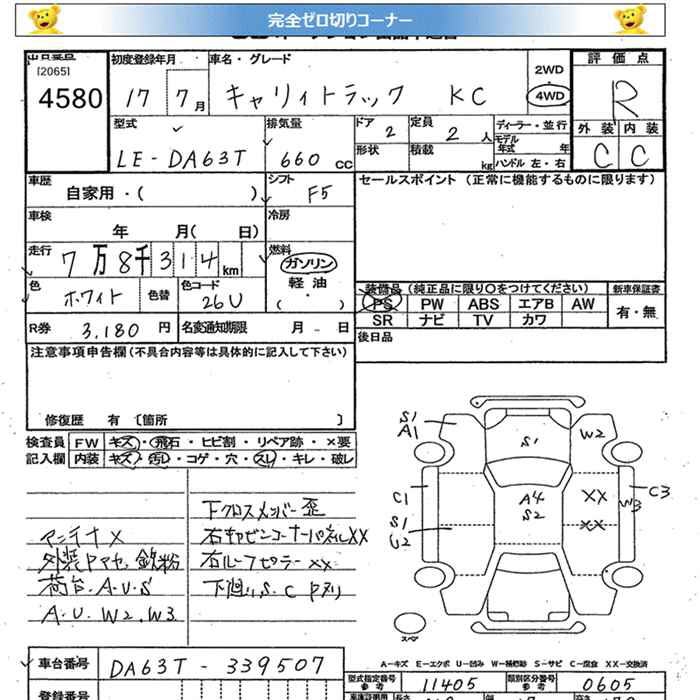 完全ゼロ切りコーナー
[2065] 初度登録年月 車名・グレード 2WD 評価点
4580 17 7月 キャリィトラック KC 4WD R
外装 内装
C C
型式 排気量 ドア 2 定員 2人 ディーラー・並行
モデル年式 年
LE-DA63T 660 cc 形状 積載 kg ハンドル 左・右
車歴 シフト セールスポイント (正常に機能するものに限ります)
自家用・( ) F5
車検 冷房
年 月( 日)
走行 燃料
7万8千314km ガソリン
軽油
( )
色 色替 色コード
ホワイト 26U
装備品 (純正品に限り〇をつけてください) 新車保証書
PS PW ABS エアB AW 有・無
SR ナビ TV カワ
R券 3,180 円 名変通知期限 月 日
後日品
注意事項申告欄(不具合内容等は具体的に記入して下さい)
修復歴 有 〔箇所 〕
検査員 FW キズ・飛石・ヒビ割・リペア跡・×要
記入欄 内装 キズ・汚レ・コゲ・穴・スレ・キレ・破レ
アンテナ×
外装ドアセ,鉄粉
荷台.A.U.S
A.U.W2.W3
下クロスメンバー歪
右キャビンコーナーパネルXX
右ルーフピラーXX
下廻りS.C
S1
A1
S1
W2
C1
A4
S2
XX
W3
C3
S1
U2
XX
スペア
A-キズ E-エクボ U-凹み W-補修跡 S-サビ C-腐食 XX-交換済
車台番号 DA63T-339507
型式指定番号 11405 類別区分番号 0605
登録番号